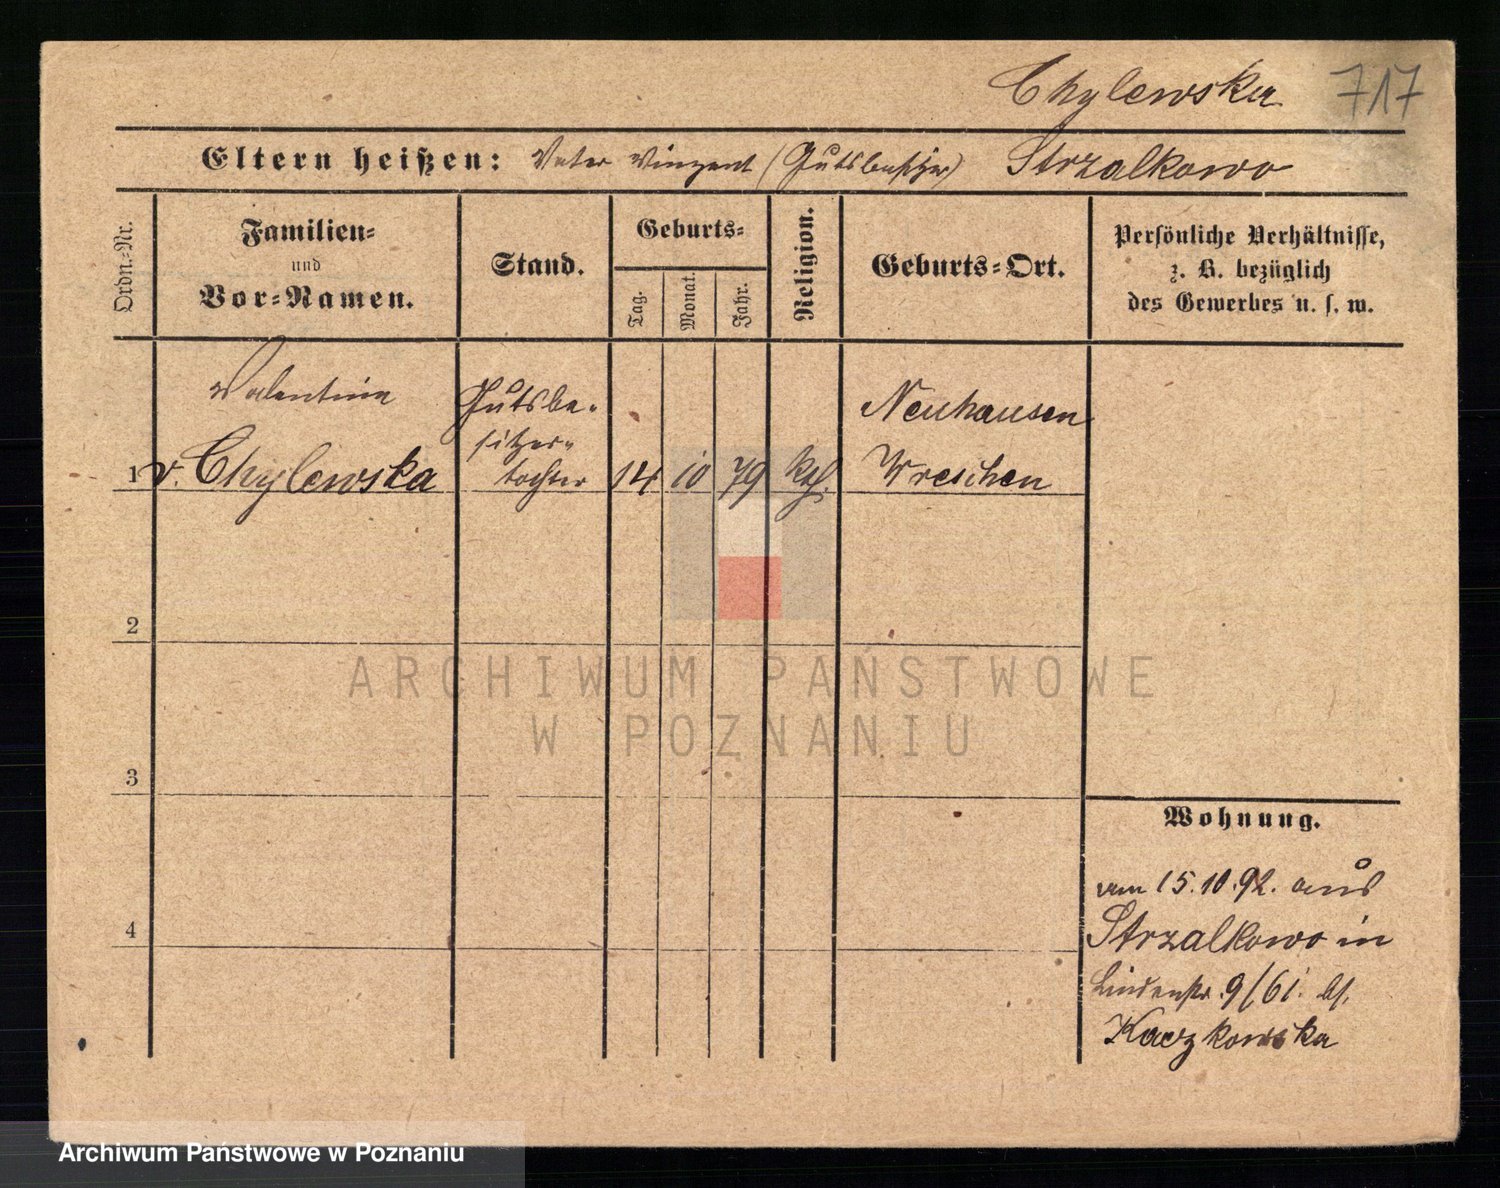 Chylewska 717
Eltern heißen: Vater Vinzent (Gutsbesitzer) Strzalkowo
Ordn.=Nr.
Familien=
und
Vor=Namen.
Stand.
Geburts=
Tag.
Monat.
Jahr.
Religion.
Geburts=Ort.
Persönliche Verhältnisse,
z. B. bezüglich
des Gewerbes u. s. w.
Valentine
1 v. Chylewska
Gutsbe-
sitzer-
tochter
14 10 79 kth.
Neuhausen
Wreschen
2
3
4
Wohnung.
vom 15.10.92. aus
Strzalkowo in
Lindenstr. 9/61. bf.
Kaczkowska
ARCHIWUM PAŃSTWOWE
W POZNANIU
Archiwum Państwowe w Poznaniu